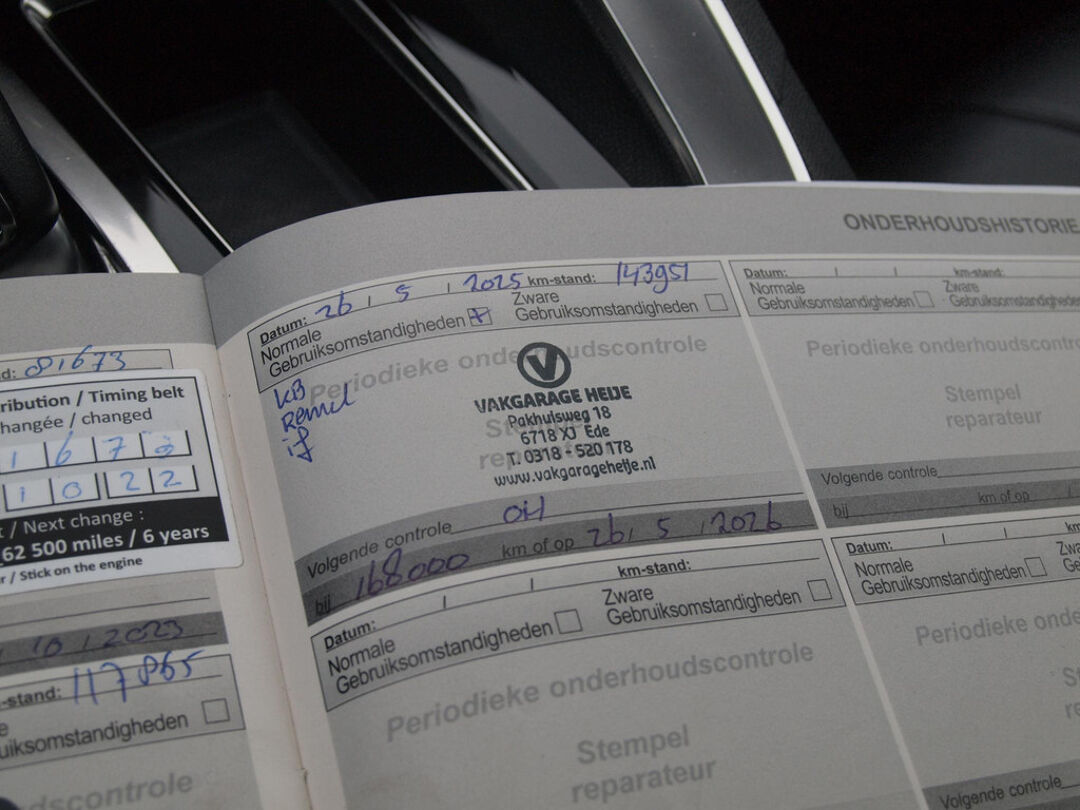 d: 81673
ribution / Timing belt
hangée / changed
1 6 7 3
1 0 2 2
t / Next change :
62 500 miles / 6 years
r / Stick on the engine
10 / 2023
-stand: 117865
e
uiksomstandigheden
dscontrole
ONDERHOUDSHISTORIE
Datum: 26 / 5 / 2025 km-stand: 143951
Normale Gebruiksomstandigheden
Zware Gebruiksomstandigheden
Periodieke onderhoudscontrole
KB
Remvl
if
V
VAKGARAGE HEIJE
Pakhuisweg 18
6718 XJ Ede
T. 0318 - 520 178
www.vakgarageheije.nl
Volgende controle OH
bij 168000 km of op 26 / 5 / 2026
Datum: / / km-stand:
Normale Gebruiksomstandigheden
Zware Gebruiksomstandigheden
Periodieke onderhoudscontrole
Stempel
reparateur
Datum: / / km-stand:
Normale Gebruiksomstandigheden
Zware Gebruiksomstandigheden
Periodieke onderhoudscontro
Stempel
reparateur
Volgende controle
bij km of op /
Datum: / /
Normale Gebruiksomstandigheden
Periodieke onde
Volgende controle